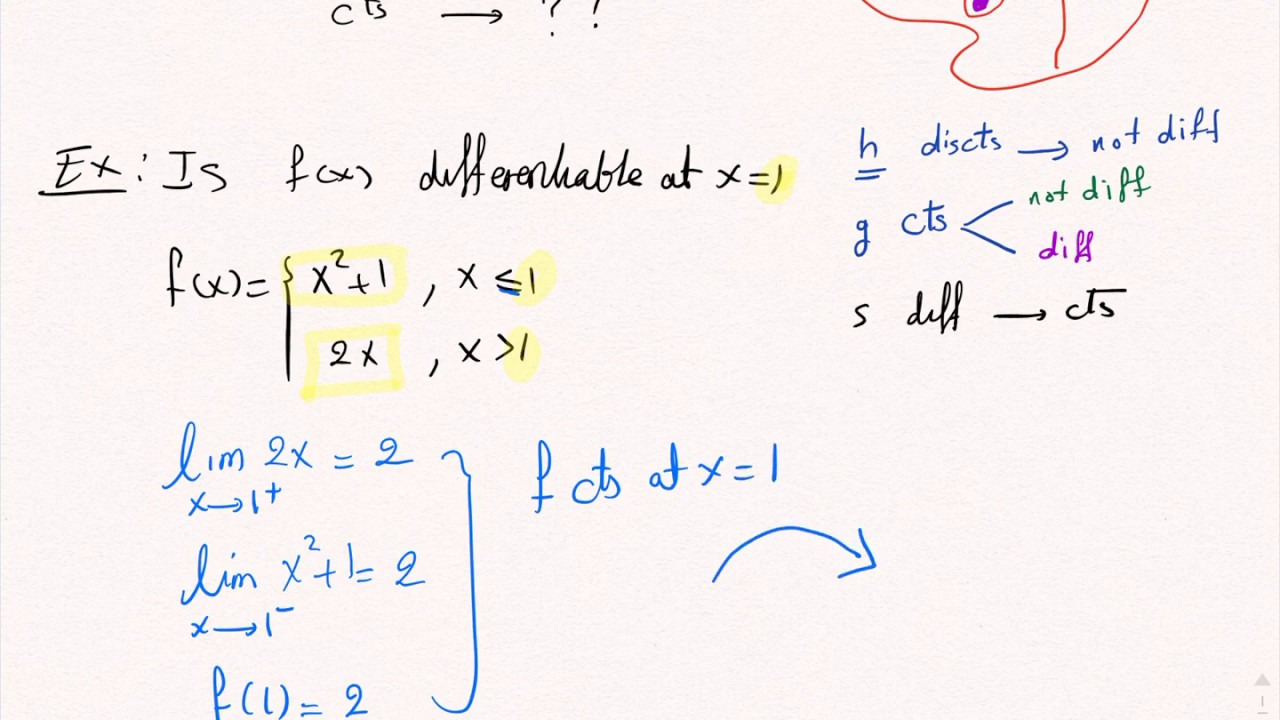 cts → ? ?
Ex: Is f(x) differentiable at x=1
f(x)= { x²+1 , x ≤ 1
2x , x > 1
h discts → not diff
g cts < not diff
diff
s diff → cts
lim 2x = 2
x→1⁺
lim x²+1 = 2
x→1⁻
f(1) = 2
f cts at x = 1